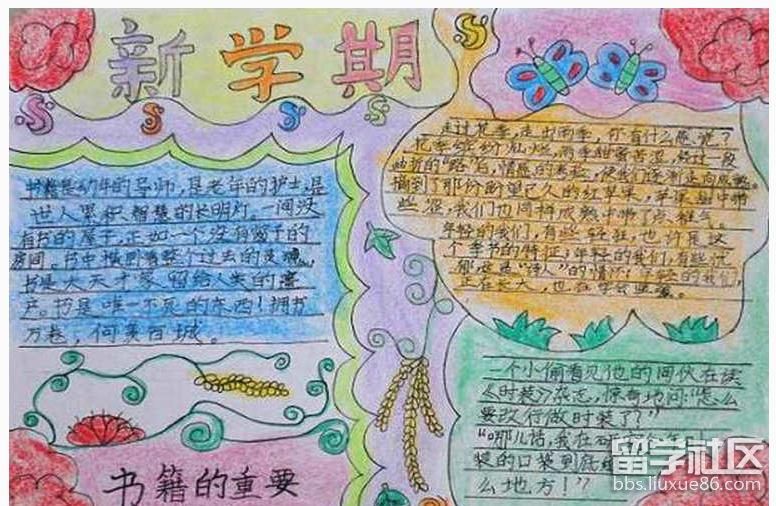 新学期
书籍是幼年的导师，是老年的护士，是
世人累积智慧的长明灯。一间没
有书的屋子，正如一个没有窗子的
房间。书中横卧着整个过去的灵魂，
书是大天才家留给人类的遗
产。书是唯一不死的东西！拥书
万卷，何美百城。
书籍的重要
走过花季，走出雨季，你有什么感觉？
花季缤纷灿烂，雨季甜蜜苦涩，经过一段
曲折的"路"后，情感的
摘到了那份盼望已久的红苹果，苹果甜中带
些涩，我们也同样成熟中带了点稚气。
年轻的我们，有些轻狂，也许是这
个季节的特征；年轻的我们，有些忧
郁，"诗人"的情怀；年轻的我们，
正在长大，也在学会
一个小偷看见他的同伙在读
《时装》杂志，惊奇地问："怎么
要改行做时装了？"
"哪儿话，我在研
装的口袋到底
么地方！"
留学社区
bbs.liuxue86.com